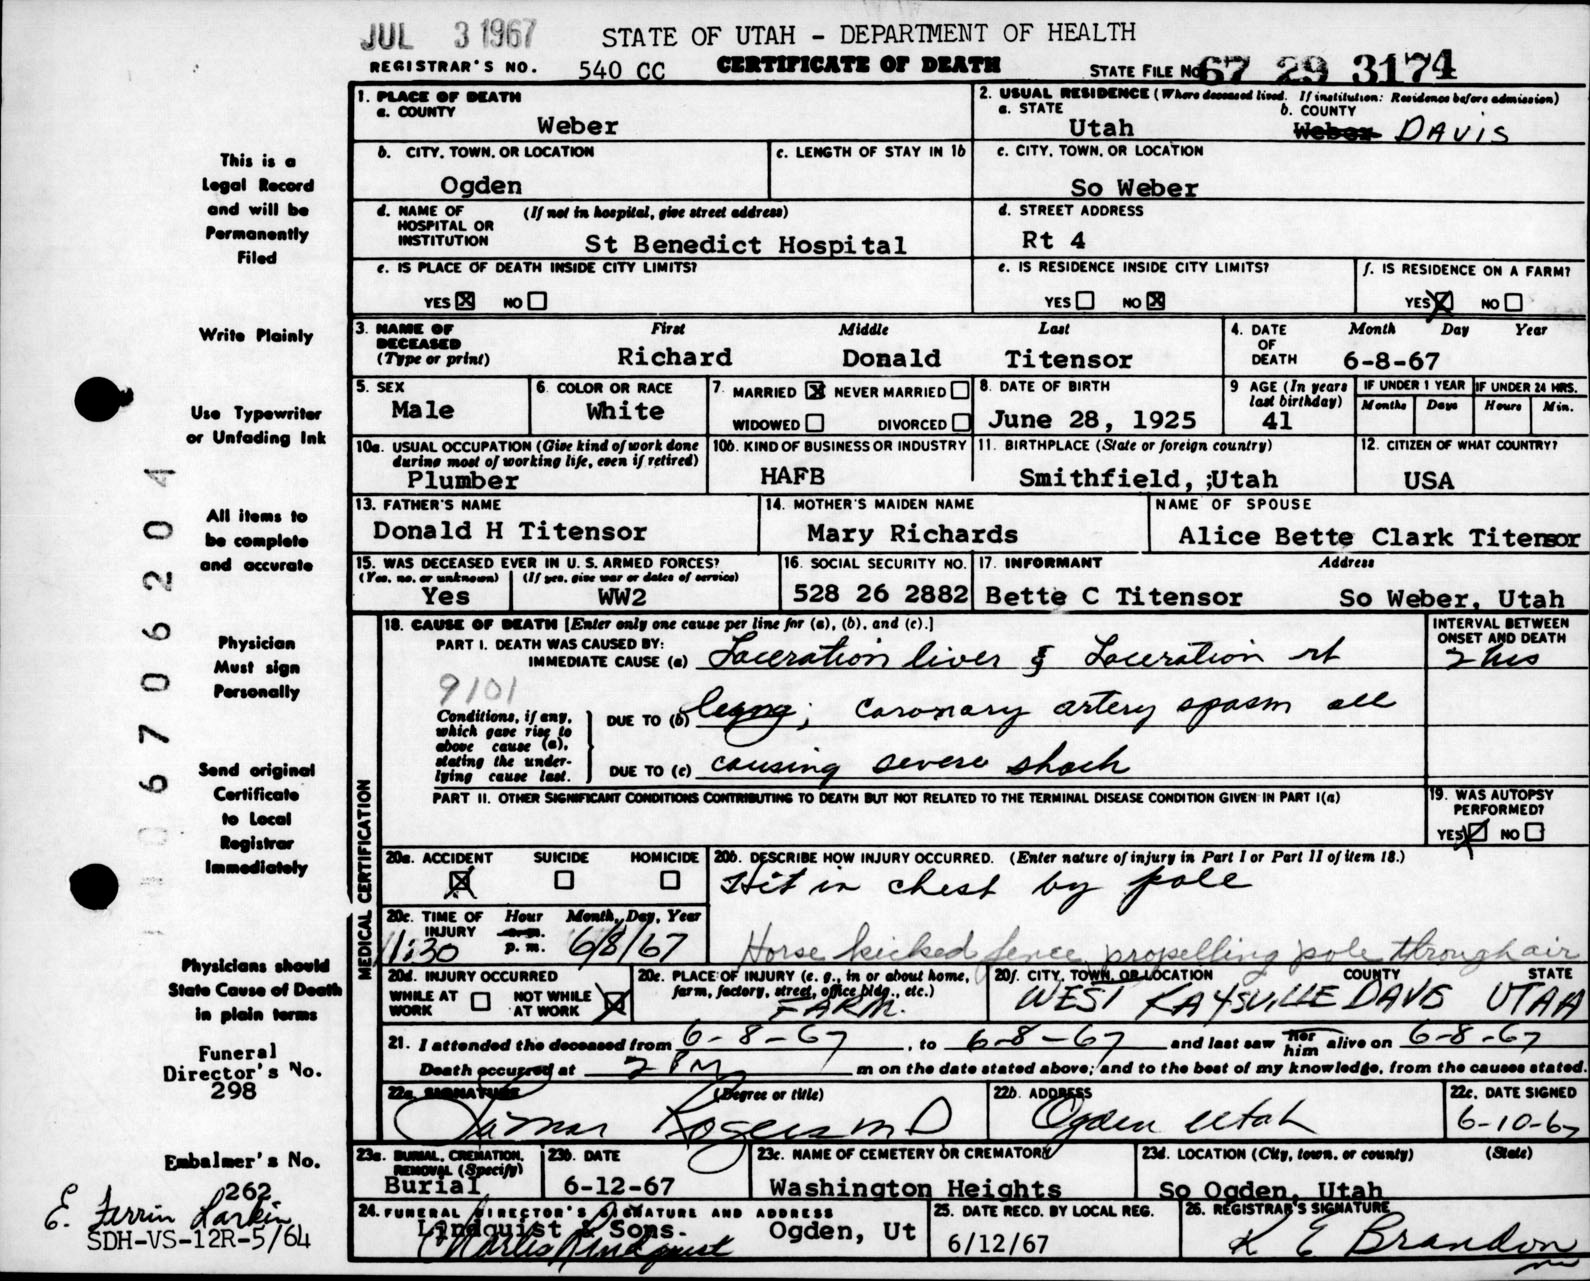 JUL 3 1967
STATE OF UTAH - DEPARTMENT OF HEALTH
REGISTRAR'S NO. 540 CC CERTIFICATE OF DEATH STATE FILE NO 67 29 3174
This is a
Legal Record
and will be
Permanently
Filed
Write Plainly
Use Typewriter
or Unfading Ink
All items to
be complete
and accurate
Physician
Must sign
Personally
Send original
Certificate
to Local
Registrar
Immediately
Physicians should
State Cause of Death
in plain terms
Funeral
Director's No.
298
Embalmer's No.
262
E. Ferrin Larkin
SDH-VS-12R-5/64
06706204
1. PLACE OF DEATH
a. COUNTY
Weber
2. USUAL RESIDENCE (Where deceased lived. If institution: Residence before admission)
a. STATE b. COUNTY
Utah Weber DAVIS
b. CITY, TOWN, OR LOCATION
Ogden
c. LENGTH OF STAY IN 1b
c. CITY, TOWN, OR LOCATION
So Weber
d. NAME OF HOSPITAL OR INSTITUTION (If not in hospital, give street address)
St Benedict Hospital
d. STREET ADDRESS
Rt 4
e. IS PLACE OF DEATH INSIDE CITY LIMITS?
YES X NO
e. IS RESIDENCE INSIDE CITY LIMITS?
YES NO X
f. IS RESIDENCE ON A FARM?
YES X NO
3. NAME OF DECEASED (Type or print) First Middle Last
Richard Donald Titensor
4. DATE OF DEATH Month Day Year
6-8-67
5. SEX
Male
6. COLOR OR RACE
White
7. MARRIED X NEVER MARRIED
WIDOWED DIVORCED
8. DATE OF BIRTH
June 28, 1925
9 AGE (In years last birthday)
41
IF UNDER 1 YEAR IF UNDER 24 HRS.
Months Days Hours Min.
10a. USUAL OCCUPATION (Give kind of work done during most of working life, even if retired)
Plumber
10b. KIND OF BUSINESS OR INDUSTRY
HAFB
11. BIRTHPLACE (State or foreign country)
Smithfield, ;Utah
12. CITIZEN OF WHAT COUNTRY?
USA
13. FATHER'S NAME
Donald H Titensor
14. MOTHER'S MAIDEN NAME
Mary Richards
NAME OF SPOUSE
Alice Bette Clark Titensor
15. WAS DECEASED EVER IN U. S. ARMED FORCES?
(Yes, no, or unknown) (If yes, give war or dates of service)
Yes WW2
16. SOCIAL SECURITY NO.
528 26 2882
17. INFORMANT Address
Bette C Titensor So Weber, Utah
MEDICAL CERTIFICATION
18. CAUSE OF DEATH [Enter only one cause per line for (a), (b), and (c).]
INTERVAL BETWEEN ONSET AND DEATH
PART I. DEATH WAS CAUSED BY:
IMMEDIATE CAUSE (a) Laceration liver & Laceration rt 2 hrs
9101
Conditions, if any, which gave rise to above cause (a), stating the underlying cause last.
DUE TO (b) lung; coronary artery spasm all
DUE TO (c) causing severe shock
PART II. OTHER SIGNIFICANT CONDITIONS CONTRIBUTING TO DEATH BUT NOT RELATED TO THE TERMINAL DISEASE CONDITION GIVEN IN PART I(a)
19. WAS AUTOPSY PERFORMED?
YES X NO
20a. ACCIDENT SUICIDE HOMICIDE
X
20b. DESCRIBE HOW INJURY OCCURRED. (Enter nature of injury in Part I or Part II of item 18.)
Hit in chest by pole
Horse kicked fence, propelling pole through air
20c. TIME OF INJURY Hour Month, Day, Year
a.m.
p.m.
11:30 6/8/67
20d. INJURY OCCURRED
WHILE AT WORK NOT WHILE AT WORK X
20e. PLACE OF INJURY (e. g., in or about home, farm, factory, street, office bldg., etc.)
FARM.
20f. CITY, TOWN, OR LOCATION COUNTY STATE
WEST KAYSVILLE DAVIS UTAH
21. I attended the deceased from 6-8-67, to 6-8-67 and last saw her him alive on 6-8-67
Death occurred at 2 PM m on the date stated above; and to the best of my knowledge, from the causes stated.
22a. SIGNATURE (Degree or title)
Lamar Rogers M D
22b. ADDRESS
Ogden Utah
22c. DATE SIGNED
6-10-67
23a. BURIAL, CREMATION, REMOVAL (Specify)
Burial
23b. DATE
6-12-67
23c. NAME OF CEMETERY OR CREMATORY
Washington Heights
23d. LOCATION (City, town, or county) (State)
So Ogden, Utah
24. FUNERAL DIRECTOR'S SIGNATURE AND ADDRESS
Lindquist & Sons. Ogden, Ut
Charles Lindquist
25. DATE RECD. BY LOCAL REG.
6/12/67
26. REGISTRAR'S SIGNATURE
K E Brandon